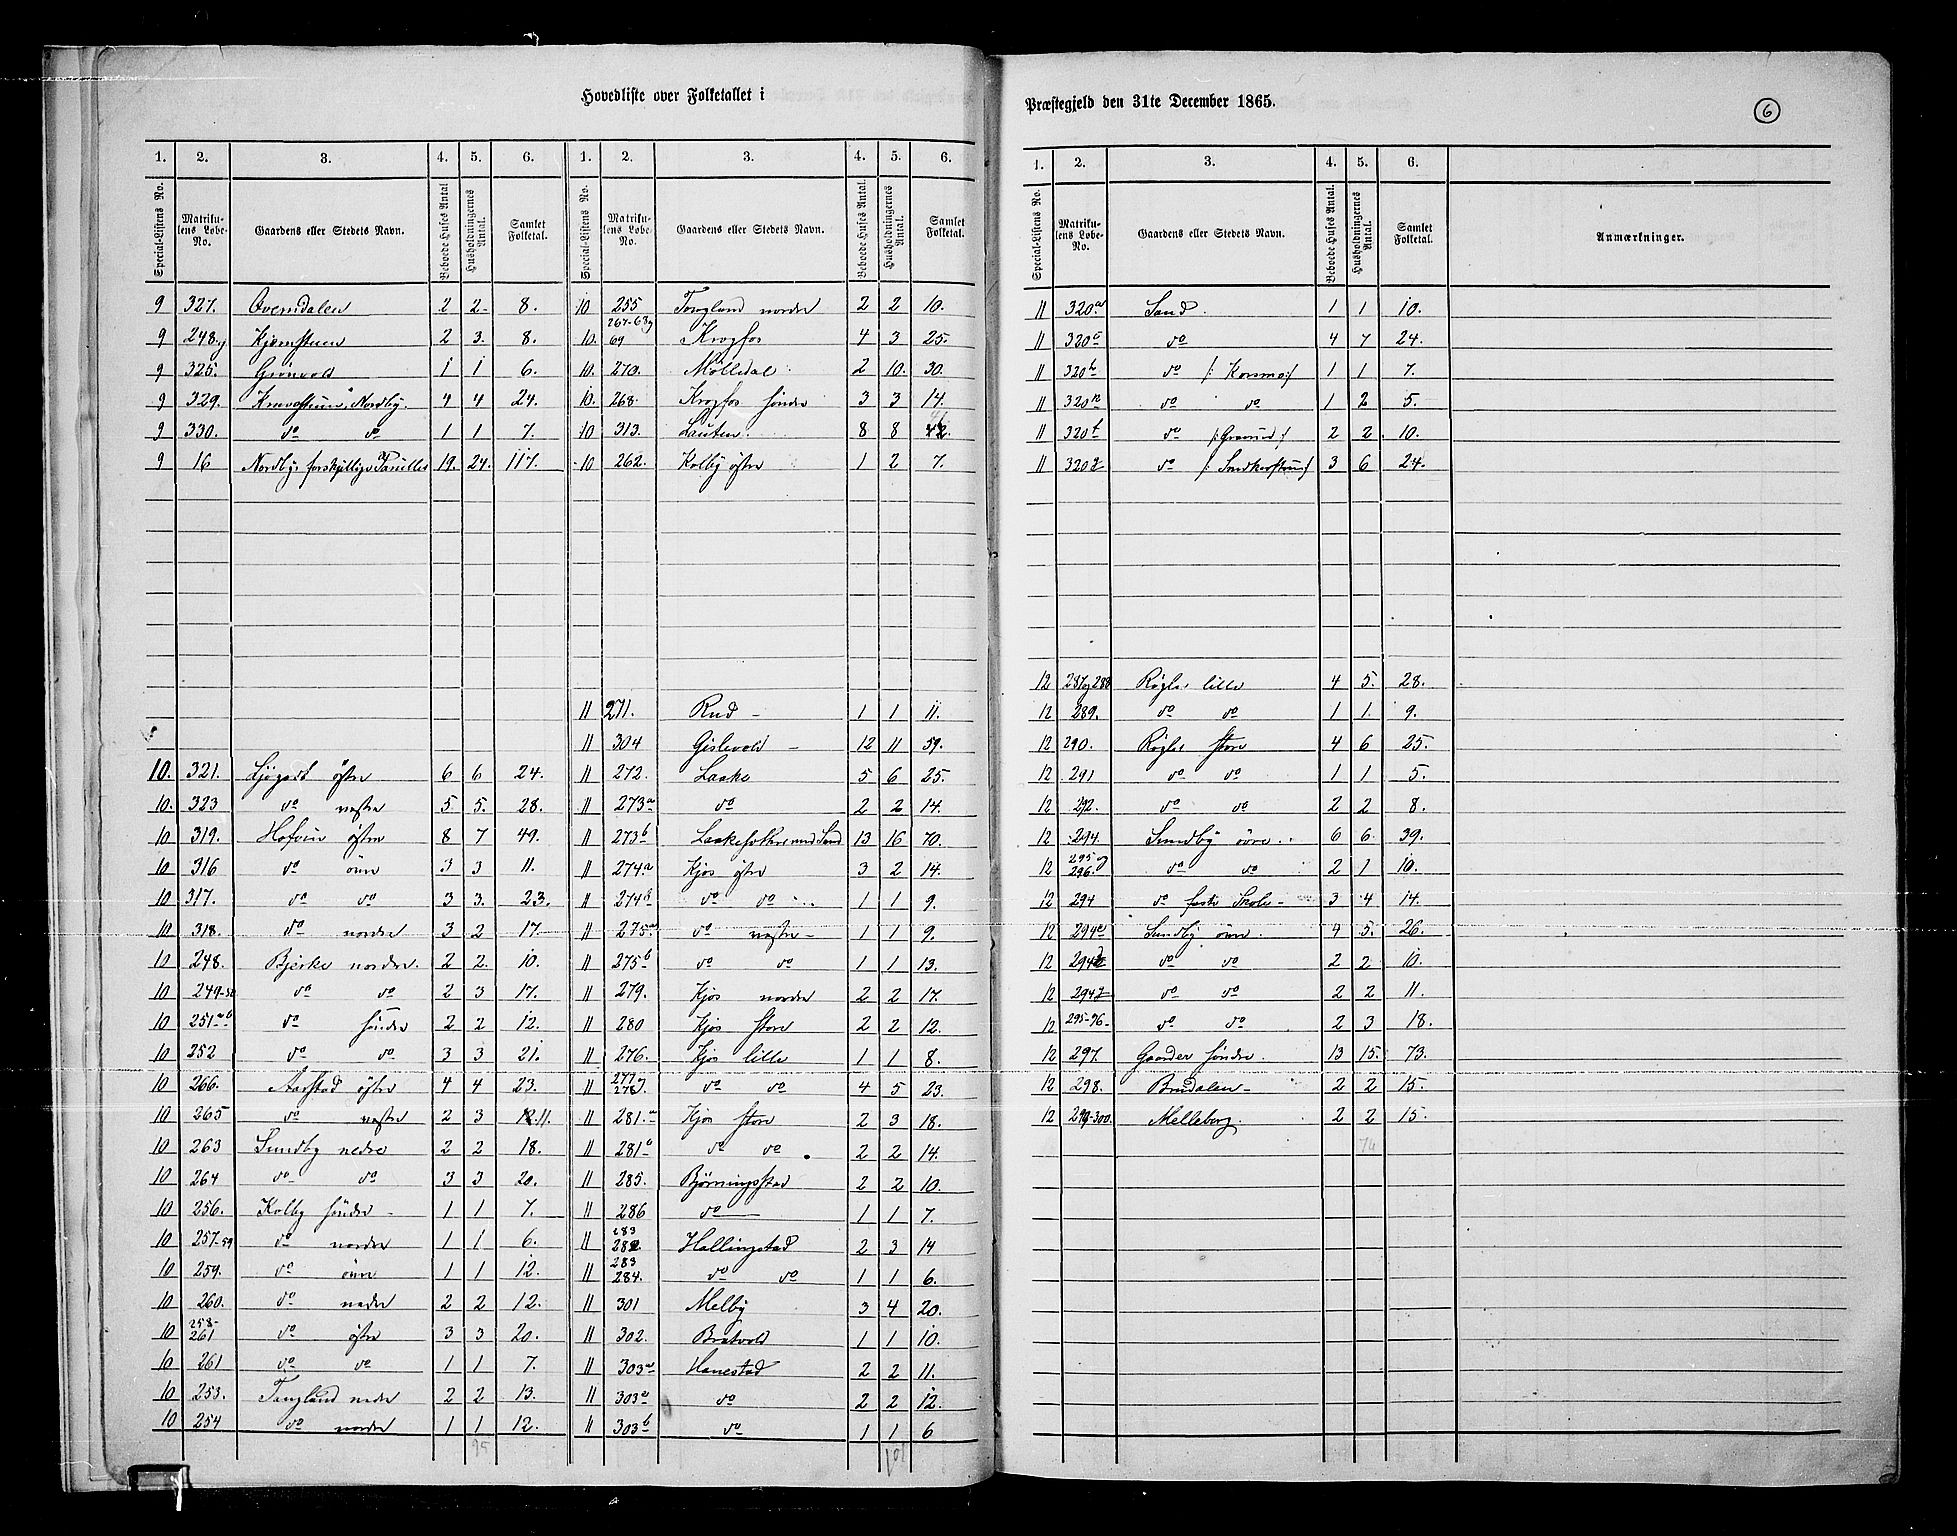 Hovedliste over Folketallet i
Præstegjeld den 31te December 1865.
6
1. 2. 3. 4. 5. 6. 1. 2. 3. 4. 5. 6.
Special-Listens No. Matrikulens Løbe-No. Gaardens eller Stedets Navn. Beboede Huses Antal Husholdningernes Antal. Samlet Folketal. Special-Listens No. Matrikulens Løbe-No. Gaardens eller Stedets Navn. Beboede Huses Antal. Husholdningernes Antal. Samlet Folketal.
9 327. 2 2. 8.
9 248. 2 3. 8.
9 325. Grönvold 1 1 6.
9 329. Nordby. 4 4 24.
9 330. do do 1 1 7.
9 16 Nordbys forskjellige Familier 19. 24. 117.
10. 321. östre 6 6 24.
10. 323 do vestre 5 5. 28.
10 319. Hofvin östre 8 7 49.
10 316 do övre 3 3 11.
10 317. do do 3 3. 23.
10 318. do nordre 3 2 17.
10 248. Bjerke nordre. 2 2. 10.
10 249-50 do do 2 3 17.
10 251 a b do söndre 2 2 12.
10 252 do do 3 3 21.
10 266. Aarstad östre 4 4 23.
10 265 do vestre 2 3 11.
10 263 Sundby nedre 2 2 18.
10 264 do do 3 3 20.
10 256. Kolby söndre 1 1 7.
10 257-59 do nordre 1 1 6.
10 259. do övre 1 1 12.
10 260. do nedre 2 2 12.
10 258-261 do östre 3 3 20.
10 261 do do 1 1 7.
10 253. nedre 2 2 13.
10 254 do nordre 1 1 12.
95
10 255 nordre 2 2 10.
10. 267-68 og 69 Krogfos 4 3 25.
10. 270. Mölledal 2 10. 30.
10. 268. Krogfos söndre 3 3 14.
10 313. Lauten 8 8 42.
10 262. Kolby östre 1 2 7.
11 271. Rud 1 1 11.
11 304 Gislevold 12 11 59.
11 272. Laake 5 6 25.
11 273 a do 2 2 14.
11 273 b 13 16 70.
11 274 a Kjos östre 3 2 14.
11 274 b do do 1 1 9.
11 275 a do vestre 1 1 9.
11 275 b do do 1 1 13.
11 279. Kjos nordre 2 2 17.
11 280 Kjos store 2 2 12.
11 276. Kjos lille 1 1 8.
11 277 278 do do 4 5 23.
11 281 a Kjos store 2 3 18.
11 281 b do do 2 2 14.
11 285. Björningstad 2 2 10.
11 286 do 1 1 7.
11 283 282 Hallingstad 2 3 14
11 283 284. do do 1 1 6.
11 301 Melby 3 4 20.
11 302. Bratvold 1 1 10.
11 303 a Hanestad 2 2 11.
11 303 a do 2 2 12.
11 303 b do 1 1 6
101
1. 2. 3. 4. 5. 6.
Special-Listens No. Matrikulens Løbe-No. Gaardens eller Stedets Navn. Beboede Huses Antal. Husholdningernes Antal. Samlet Folketal. Anmærkninger.
11 320 a Sand. 1 1 10.
11 320 do 4 7 24.
11 320 do /: Korsmo :/ 1 1 7.
11 320 do do 1 2 5.
11 320 do 2 2. 10.
11 320 do 3 6 24.
12 287 og 288 Røgler lille 4 5. 28.
12 289. do do 1 1. 9.
12 290. Røgler store 4 6 25.
12 291 do do 1 1 5.
12 292. do do 2 2 8.
12 294. Sundby övre 6 6 39.
12 295 og 296. do do 2 1 10.
12 294 do faste Skole 3 4 14.
12 294 Sundby övre. 4 5. 26.
12 294 do do 2 2 10.
12 294 do do 2 2 11.
12 295-96. do do 2 3 18.
12 297. Gaarder söndre. 13 15. 73.
12 298. Brudalen 2 2 15.
12 299-300. Melleberg. 2 2 15.
74